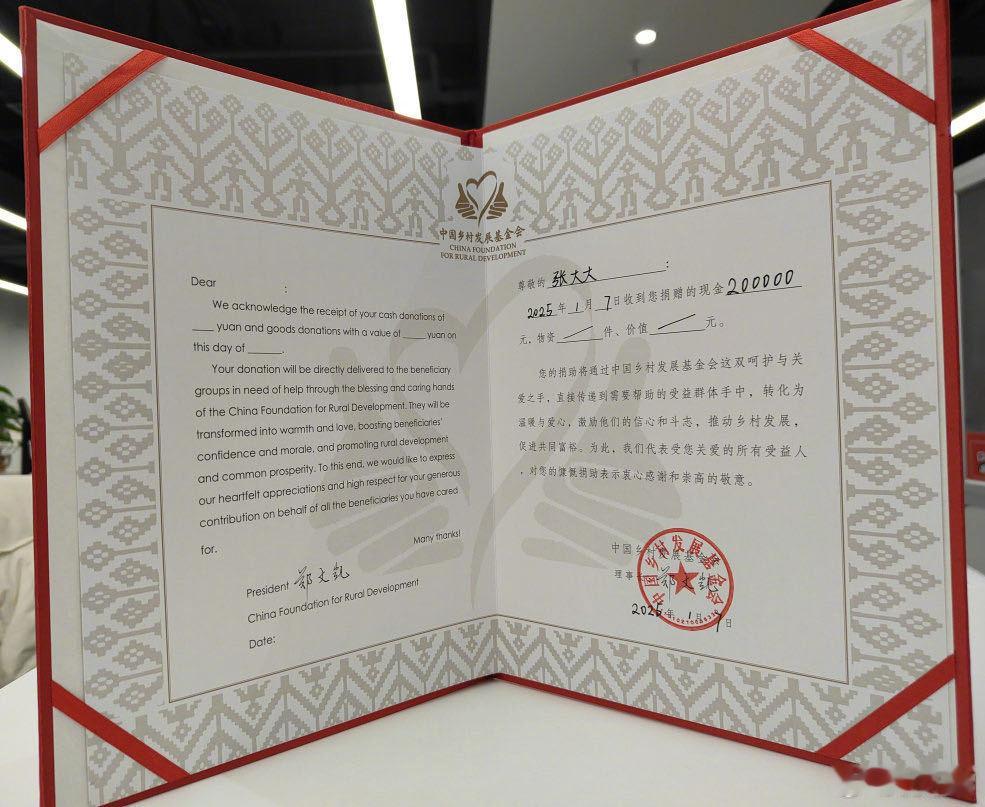 中国乡村发展基金会
CHINA FOUNDATION
FOR RURAL DEVELOPMENT
Dear :
We acknowledge the receipt of your cash donations of
____ yuan and goods donations with a value of ____ yuan on
this day of _____.
Your donation will be directly delivered to the beneficiary
groups in need of help through the blessing and caring hands
of the China Foundation for Rural Development. They will be
transformed into warmth and love, boosting beneficiaries'
confidence and morale, and promoting rural development
and common prosperity. To this end, we would like to express
our heartfelt appreciations and high respect for your generous
contribution on behalf of all the beneficiaries you have cared
for.
Many thanks!
President 郑文凯
China Foundation for Rural Development
Date:
尊敬的 张大大 :
2025年1月7日收到您捐赠的现金200000
元,物资 / 件、价值 / 元。
您的捐助将通过中国乡村发展基金会这双呵护与关
爱之手,直接传递到需要帮助的受益群体手中,转化为
温暖与爱心,激励他们的信心和斗志,推动乡村发展,
促进共同富裕。为此,我们代表受您关爱的所有受益人
,对您的慷慨捐助表示衷心感谢和崇高的敬意。
中国乡村发展基金会
理事长 郑文凯
2025年1月7日
中国乡村发展基金会